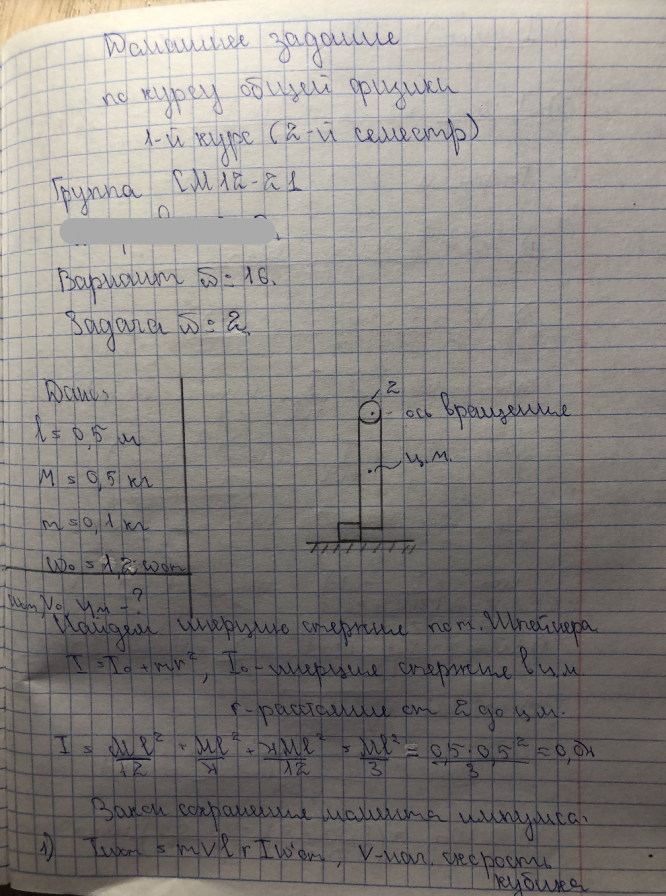 Домашнее задание
по курсу общей физики
1-й курс (2-й семестр)
Группа СМ12-21
Вариант №: 16.
Задача №: 2.
Дано:
l = 0,5 м
M = 0,5 кг
m = 0,1 кг
ω₀ = 1,2 ωот
V₀, ωм - ?
z
- ось вращения
ц.м.
Найдем инерцию стержня по т. Штейнера
I = I₀ + mr², I₀ - инерция стержня в ц.м
r - расстояние от z до ц.м.
I = Ml²/12 + Ml²/4 + 4Ml²/12 = Ml²/3 = 0,5·0,5²/3 = 0,04
Закон сохранения момента импульса:
1) = mVl + Iωот, V - нач. скорость
кубика